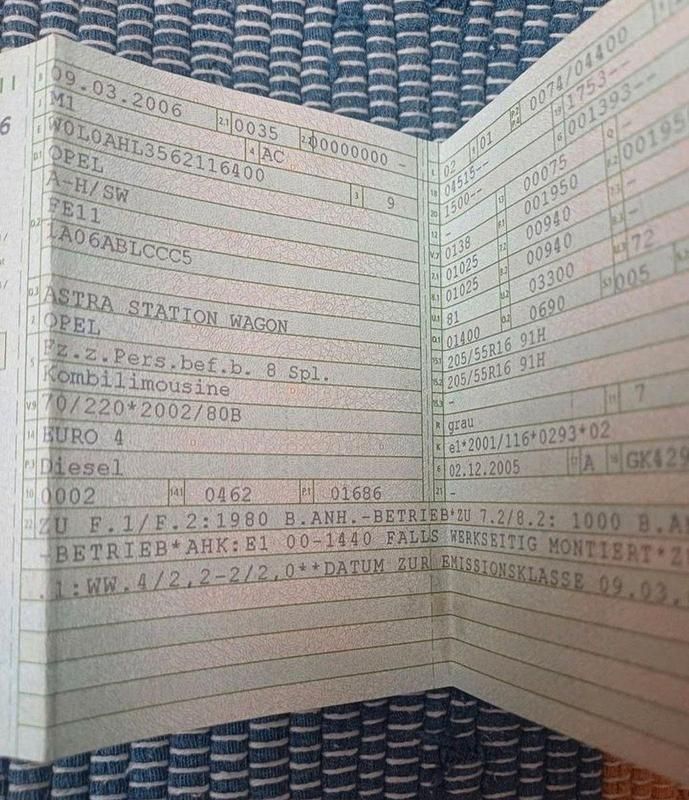 B 09.03.2006 2.1 0035 2.2 00000000 -
J M1 4 AC
E W0L0AHL3562116400 3 9
D.1 OPEL
A-H/SW
D.2 FE11
1A06ABLCCC5
D.3 ASTRA STATION WAGON
2 OPEL
5 Fz.z.Pers.bef.b. 8 Spl.
Kombilimousine
V.9 70/220*2002/80B
14 EURO 4
P.3 Diesel
10 0002 14.1 0462 P.1 01686
L 02 9 01 P.2 P.4 0074/04400
18 04515-- 19 1753--
20 1500-- G 001393--
12 - 13 00075 Q -
V.7 0138 F.1 001950 F.2 00195
7.1 01025 7.2 00940 7.3 -
8.1 01025 8.2 00940 8.3 -
U.1 81 U.2 03300 U.3 72
O.1 01400 O.2 0690 S.1 005
15.1 205/55R16 91H
15.2 205/55R16 91H
15.3 -
R grau 11 7
K e1*2001/116*0293*02
6 02.12.2005 17 A 16 GK429
21 -
22 ZU F.1/F.2:1980 B.ANH.-BETRIEB*ZU 7.2/8.2: 1000 B.A
-BETRIEB*AHK:E1 00-1440 FALLS WERKSEITIG MONTIERT*Z
.1:WW.4/2,2-2/2,0**DATUM ZUR EMISSIONSKLASSE 09.03.